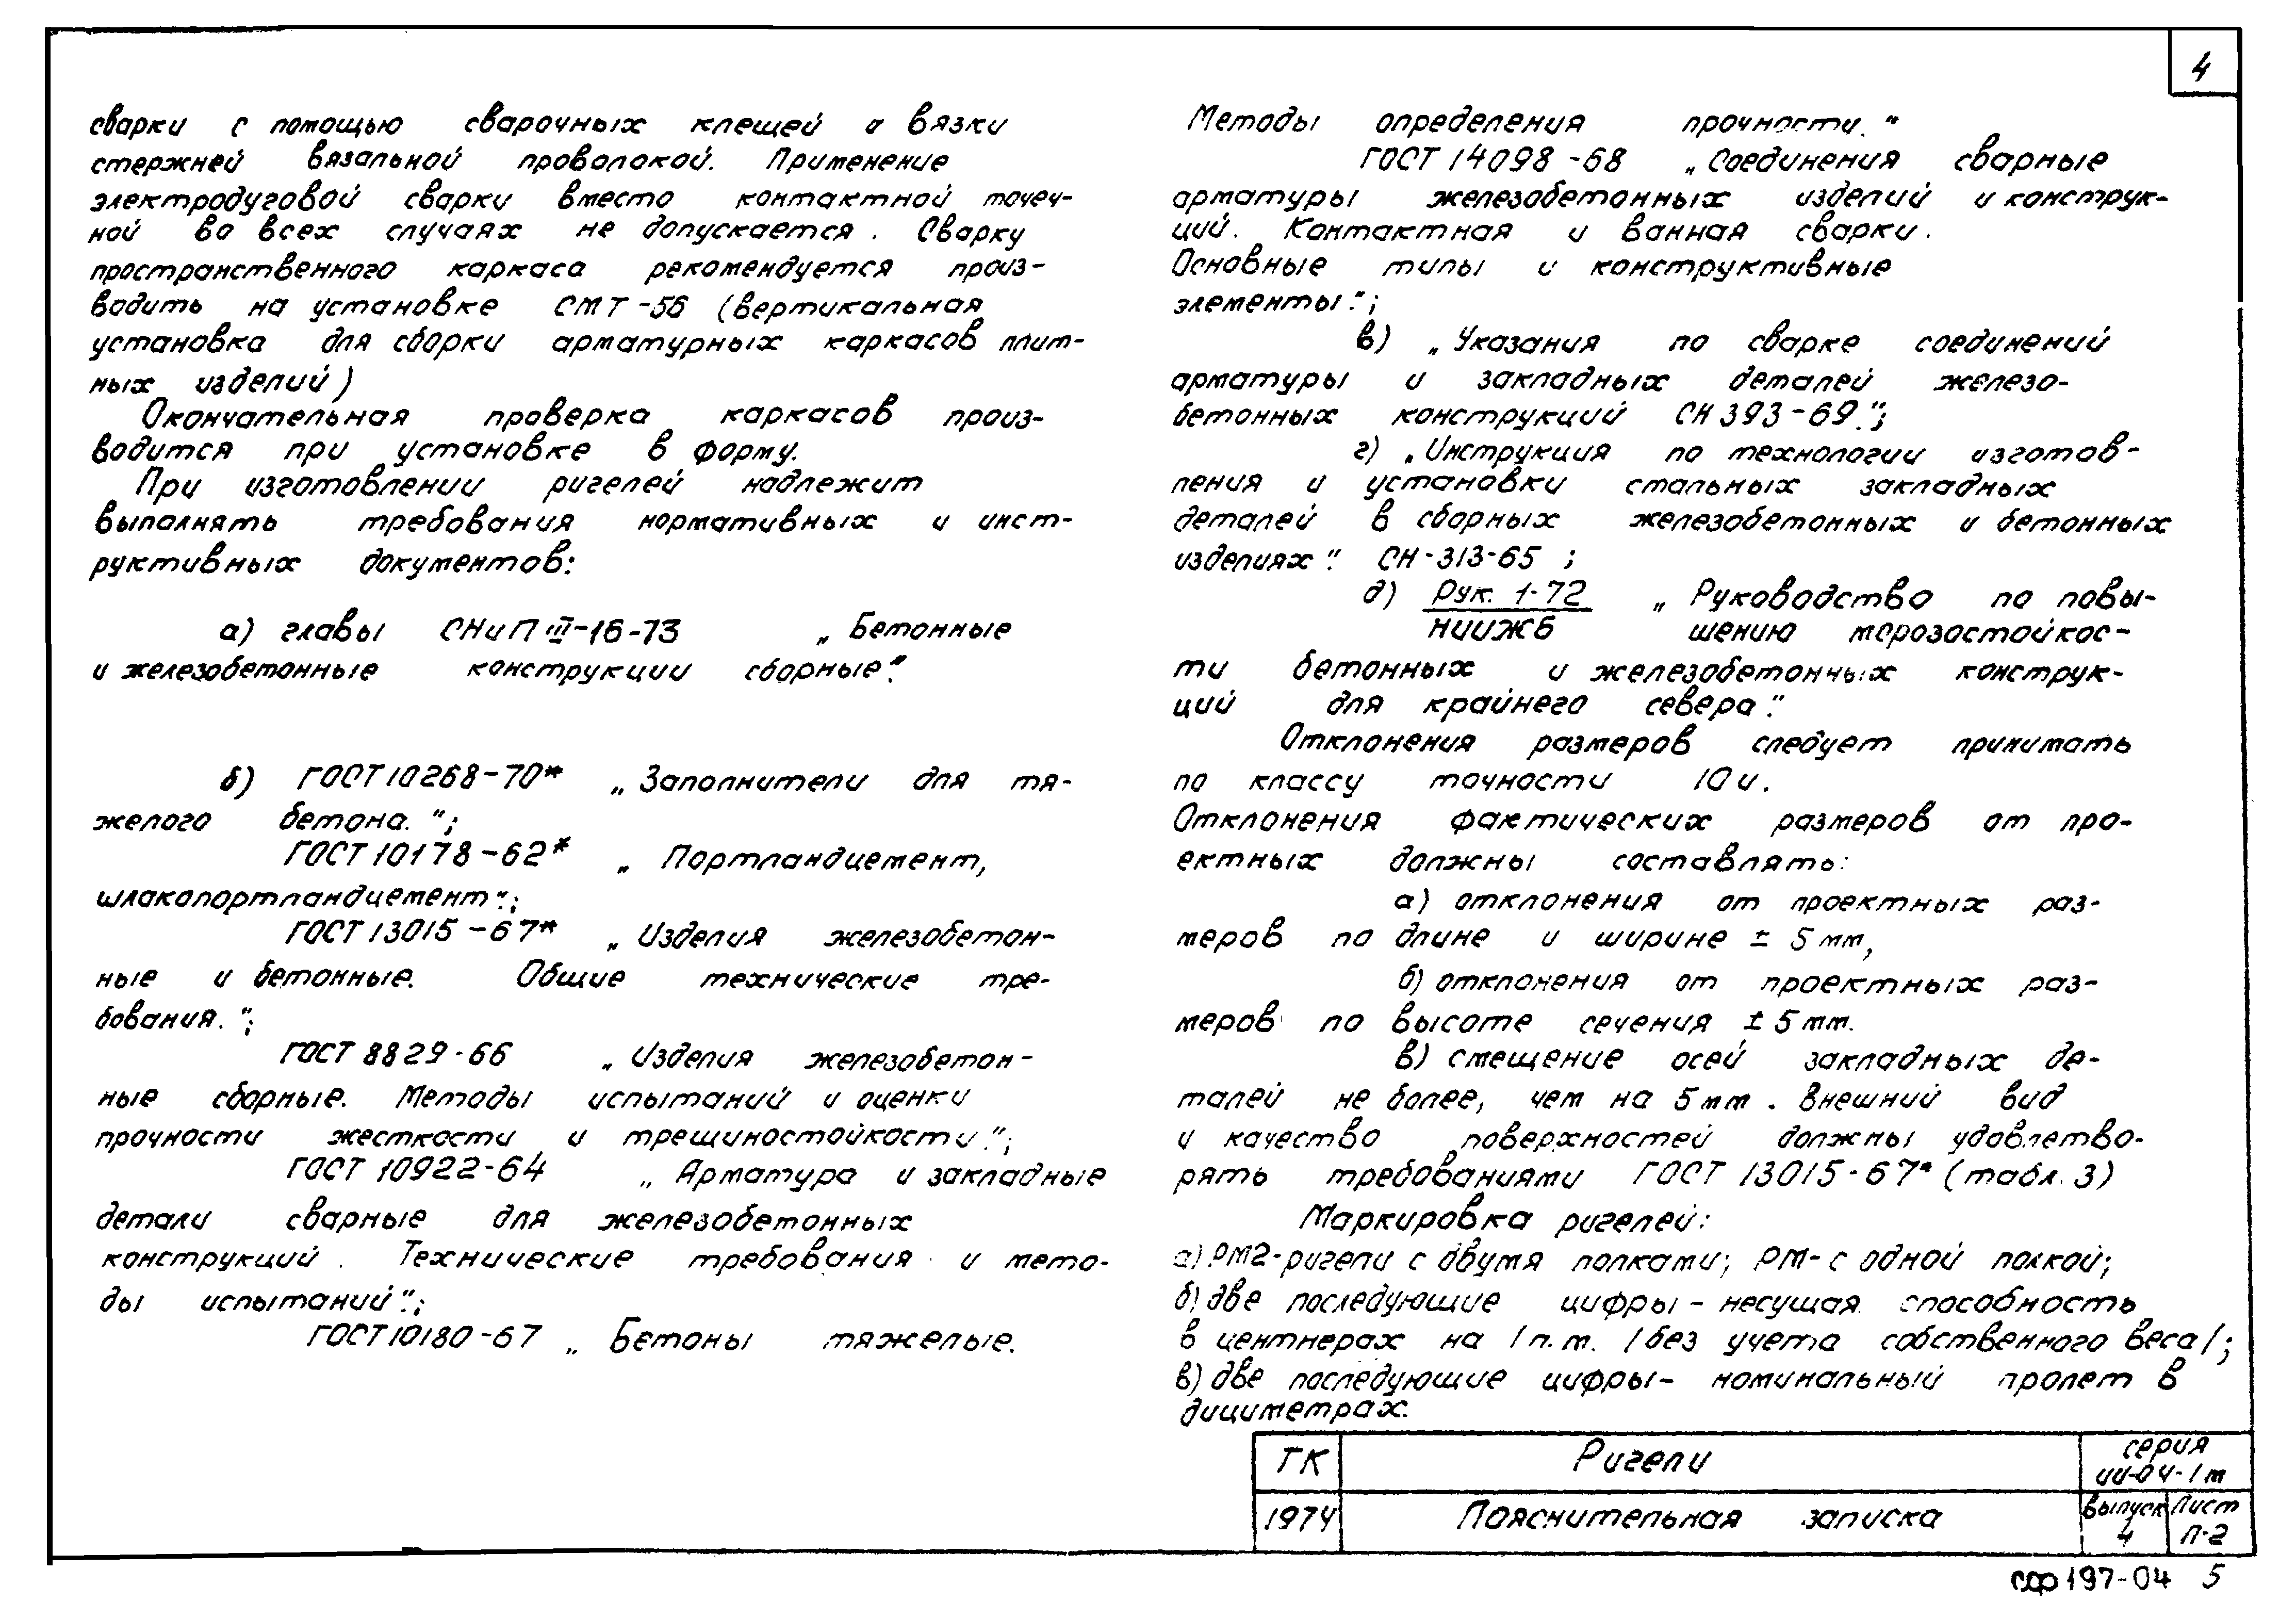 4
сварки с помощью сварочных клещей и вязки
стержней вязальной проволокой. Применение
электродуговой сварки вместо контактной точеч-
ной во всех случаях не допускается. Сварку
пространственного каркаса рекомендуется произ-
водить на установке СМТ-56 (вертикальная
установка для сборки арматурных каркасов плит-
ных изделий)
Окончательная проверка каркасов произ-
водится при установке в форму.
При изготовлении ригелей надлежит
выполнять требования нормативных и инст-
руктивных документов:
а) главы СНиП III-16-73 „Бетонные
и железобетонные конструкции сборные."
б) ГОСТ 10268-70* „Заполнители для тя-
желого бетона.";
ГОСТ 10178-62* „Портландцемент,
шлакопортландцемент.";
ГОСТ 13015-67* „Изделия железобетон-
ные и бетонные. Общие технические тре-
бования.";
ГОСТ 8829-66 „Изделия железобетон-
ные сборные. Методы испытаний и оценки
прочности жесткости и трещиностойкости.";
ГОСТ 10922-64 „Арматура и закладные
детали сварные для железобетонных
конструкций. Технические требования и мето-
ды испытаний.";
ГОСТ 10180-67 „Бетоны тяжелые.
Методы определения прочности."
ГОСТ 14098-68 „Соединения сварные
арматуры железобетонных изделий и конструк-
ций. Контактная и ванная сварки.
Основные типы и конструктивные
элементы.";
в) „Указания по сварке соединений
арматуры и закладных деталей железо-
бетонных конструкций СН 393-69.";
г) „Инструкция по технологии изготов-
ления и установки стальных закладных
деталей в сборных железобетонных и бетонных
изделиях". СН-313-65;
д) Рук. 1-72 „Руководство по повы-
НИИЖБ шению морозостойкос-
ти бетонных и железобетонных конструк-
ций для крайнего севера."
Отклонения размеров следует принимать
по классу точности 10и.
Отклонения фактических размеров от про-
ектных должны составлять:
а) отклонения от проектных раз-
меров по длине и ширине ± 5 мм,
б) отклонения от проектных раз-
меров по высоте сечения ± 5 мм.
в) смещение осей закладных де-
талей не более, чем на 5 мм. Внешний вид
и качество поверхностей должны удовлетво-
рять требованиями ГОСТ 13015-67* (табл. 3)
Маркировка ригелей:
а) РМ2-ригели с двумя полками; РМ-с одной полкой;
б) две последующие цифры - несущая способность
в центнерах на 1 п.м. /без учета собственного веса/;
в) две последующие цифры - номинальный пролет в
дициметрах.
ТК Ригели серия
ИИ-04-1м
1974 Пояснительная записка выпуск Лист
4 П-2
сф 197-04 5